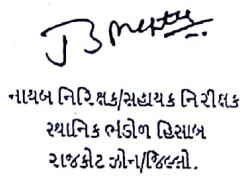 નાયબ નિરિક્ષક/સહાયક નિરીક્ષક
સ્થાનિક ભંડોળ હિસાબ
રાજકોટ ઝોન/જિલ્લો.